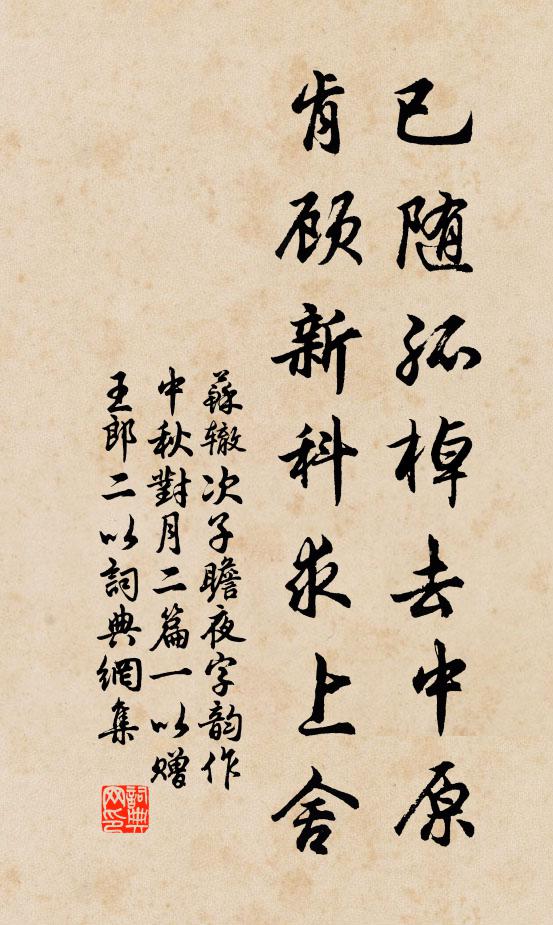 已随孤棹去中原
肯顾新科求上舍
蘇辙次子瞻夜字韵作
中秋對月二篇一以赠
王郎二以詞典網集
詞典网印